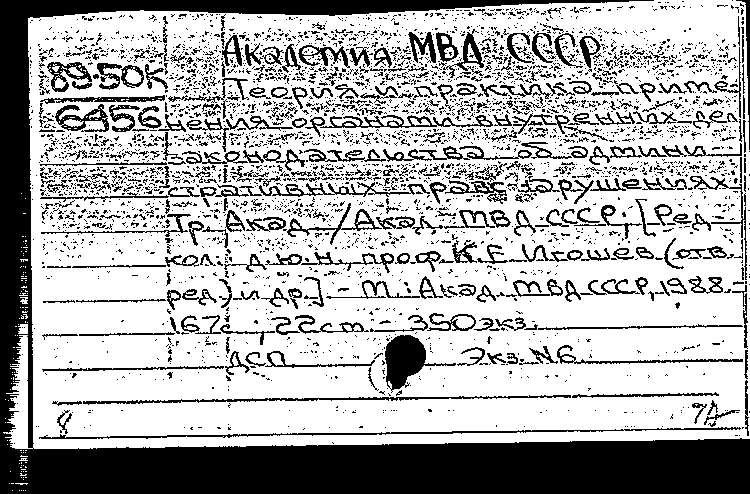 Академия МВД СССР
89-50К
6456
Теория и практика приме-
нения органами внутренних дел
законодательства об админи-
стративных правонарушениях:
Тр. Акад. / Акад. МВД СССР; [Ред-
кол.: д.ю.н., проф. К.Е. Игошев (отв.
ред.) и др.]. - М.: Акад. МВД СССР, 1988.-
167с.; 22см. - 350экз.
ДСП. Экз. N6.
8